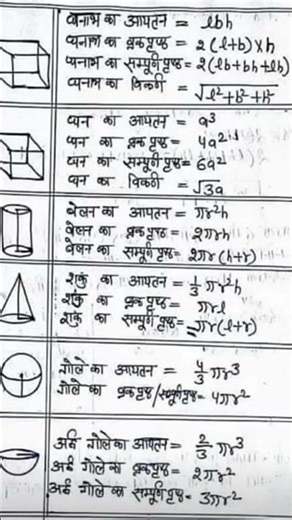 घनाभ का आयतन = lbh
घनाभ का वक्रपृष्ठ = 2(l+b)×h
घनाभ का सम्पूर्ण पृष्ठ = 2(lb+bh+lh)
घनाभ का विकर्ण = √l²+b²+h²
घन का आयतन = a³
घन का वक्रपृष्ठ = 4a²
घन का सम्पूर्ण पृष्ठ = 6a²
घन का विकर्ण = √3a
बेलन का आयतन = πr²h
बेलन का वक्रपृष्ठ = 2πrh
बेलन का सम्पूर्ण पृष्ठ = 2πr(h+r)
शंकु का आयतन = 1/3 πr²h
शंकु का वक्रपृष्ठ = πrl
शंकु का सम्पूर्ण पृष्ठ = πr(l+r)
गोले का आयतन = 4/3 πr³
गोले का वक्रपृष्ठ/सम्पूर्ण पृष्ठ = 4πr²
अर्द्ध गोले का आयतन = 2/3 πr³
अर्द्ध गोले का वक्रपृष्ठ = 2πr²
अर्द्ध गोले का सम्पूर्ण पृष्ठ = 3πr²